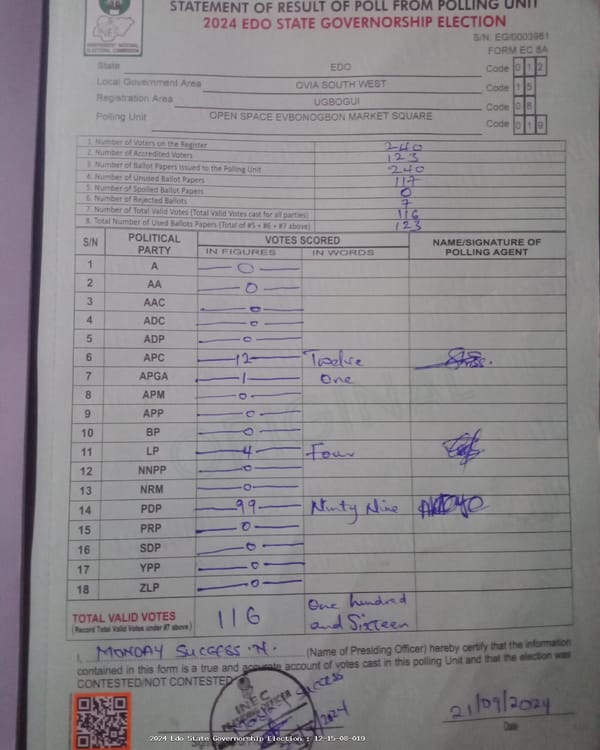 STATEMENT OF RESULT OF POLL FROM POLLING UNIT
2024 EDO STATE GOVERNORSHIP ELECTION
INEC
INDEPENDENT NATIONAL ELECTORAL COMMISSION
S/N: EG/0003961
FORM EC 8A
State EDO Code 012
Local Government Area OVIA SOUTH WEST Code 15
Registration Area UGBOGUI Code 08
Polling Unit OPEN SPACE EVBONOGBON MARKET SQUARE Code 019
1. Number of Voters on the Register 240
2. Number of Accredited Voters 123
3. Number of Ballot Papers Issued to the Polling Unit 240
4. Number of Unused Ballot Papers 117
5. Number of Spoiled Ballot Papers 0
6. Number of Rejected Ballots 7
7. Number of Total Valid Votes (Total Valid Votes cast for all parties) 116
8. Total Number of Used Ballots Papers (Total of #5 + #6 + #7 above) 123
S/N POLITICAL PARTY VOTES SCORED NAME/SIGNATURE OF POLLING AGENT
IN FIGURES IN WORDS
1 A 0
2 AA 0
3 AAC 0
4 ADC 0
5 ADP 0
6 APC 12 Twelve
7 APGA 1 One
8 APM 0
9 APP 0
10 BP 0
11 LP 4 Four
12 NNPP 0
13 NRM 0
14 PDP 99 Ninty Nine
15 PRP 0
16 SDP 0
17 YPP 0
18 ZLP 0
TOTAL VALID VOTES 116 One hundred and Sixteen
(Record Total Valid Votes under #7 above)
I, MONDAY SUCCESS .N. (Name of Presiding Officer) hereby certify that the information
contained in this form is a true and accurate account of votes cast in this polling Unit and that the election was
CONTESTED/NOT CONTESTED
INEC
SUCCESS
21/09/2024
Date
2024 Edo State Governorship Election : 12-15-08-019